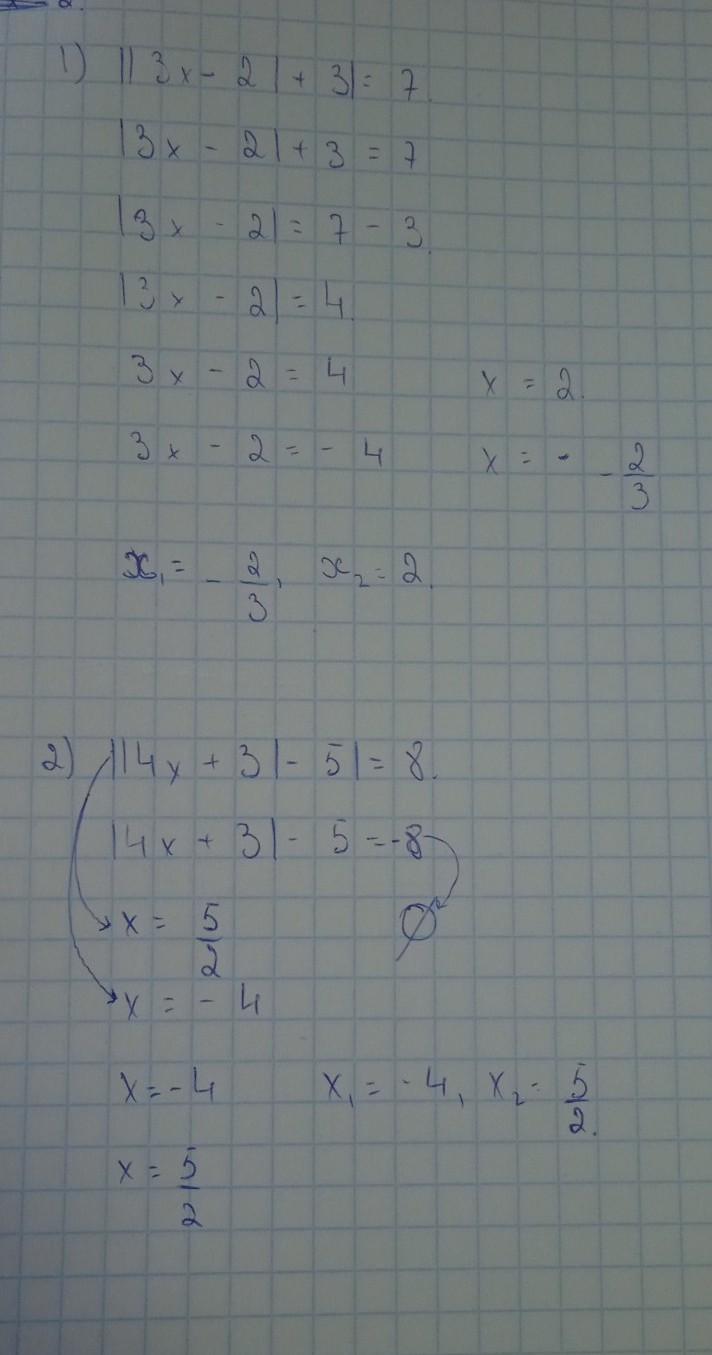 1) ||3x - 2| + 3| = 7.
|3x - 2| + 3 = 7
|3x - 2| = 7 - 3.
|3x - 2| = 4.
3x - 2 = 4 x = 2.
3x - 2 = - 4 x = - - 2/3
x₁ = - 2/3, x₂ = 2.
2) ||4x + 3| - 5| = 8.
|4x + 3| - 5 = -8
x = 5/2 Ø
x = - 4
x = -4 x₁ = -4, x₂ = 5/2.
x = 5/2